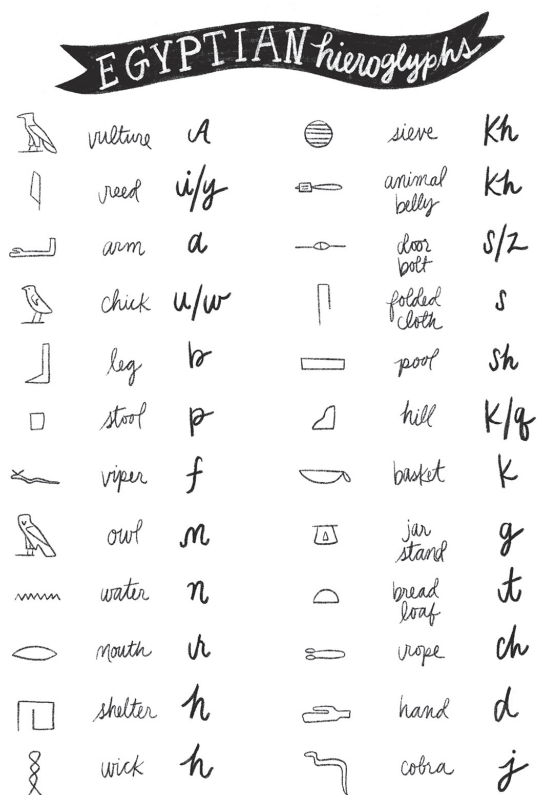 EGYPTIAN hieroglyphs
vulture A
reed i/y
arm a
chick u/w
leg b
stool p
viper f
owl m
water n
mouth r
shelter h
wick h
sieve Kh
animal belly Kh
door bolt s/z
folded cloth s
pool sh
hill K/q
basket K
jar stand g
bread loaf t
rope ch
hand d
cobra j